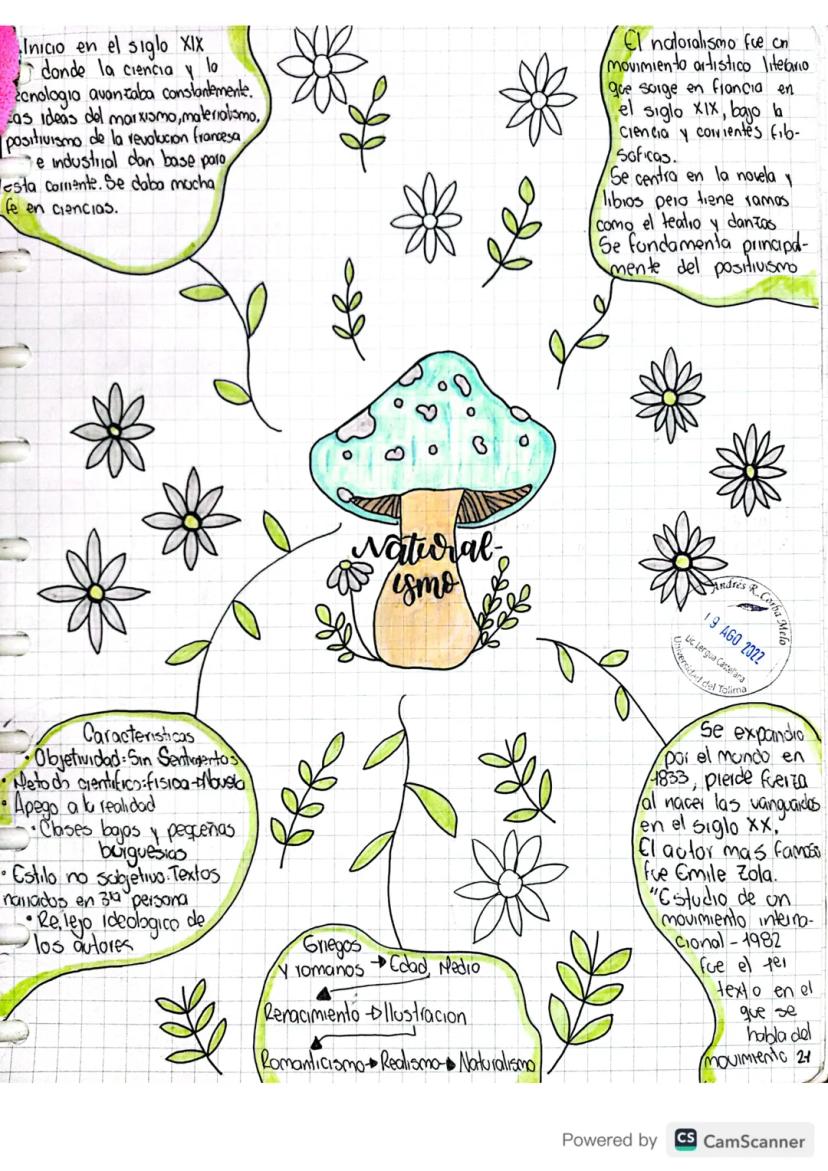 Inicio en el siglo XIX
donde la ciencia y la
ecnologia avanzaba constantemente.
as ideas del marxismo, materialismo,
positivismo de la revolucion francesa
e industrial dan base para
esta corriente. Se daba mucha
fe en ciencias.
El naturalismo fue un
movimiento artistico literario
que surge en francia en
el siglo XIX, bajo la
ciencia y corrientes filo-
soficas.
Se centra en la novela y
libros pero tiene ramas
como el teatro y danzas
Se fundamenta principal-
mente del positivismo
Natural-
ismo
Andrés R. Corba Melo
19 AGO 2022
Lic. Lengua Castellana
Universidad del Tolima
Caracteristicas
• Objetividad: Sin Sentimientos
• Metodo cientifico: fisica →
• Apego a la realidad
• Clases bajas y pequeñas
burguesias
• Estilo no subjetivo: Textos
narrados en 3ra persona
• Reflejo ideologico de
los autores
Griegos
y romanos → Edad Media
Renacimiento → Ilustracion
Romanticismo → Realismo → Naturalismo
Se expandio
por el mundo en
1833, pierde fuerza
al nacer las vanguardas
en el siglo XX.
El autor mas famoso
fue Emile Zola.
"Estudio de un
movimiento interna-
cional - 1982
fue el 1er
texto en el
que se
habla del
movimiento 21
Powered by CS CamScanner